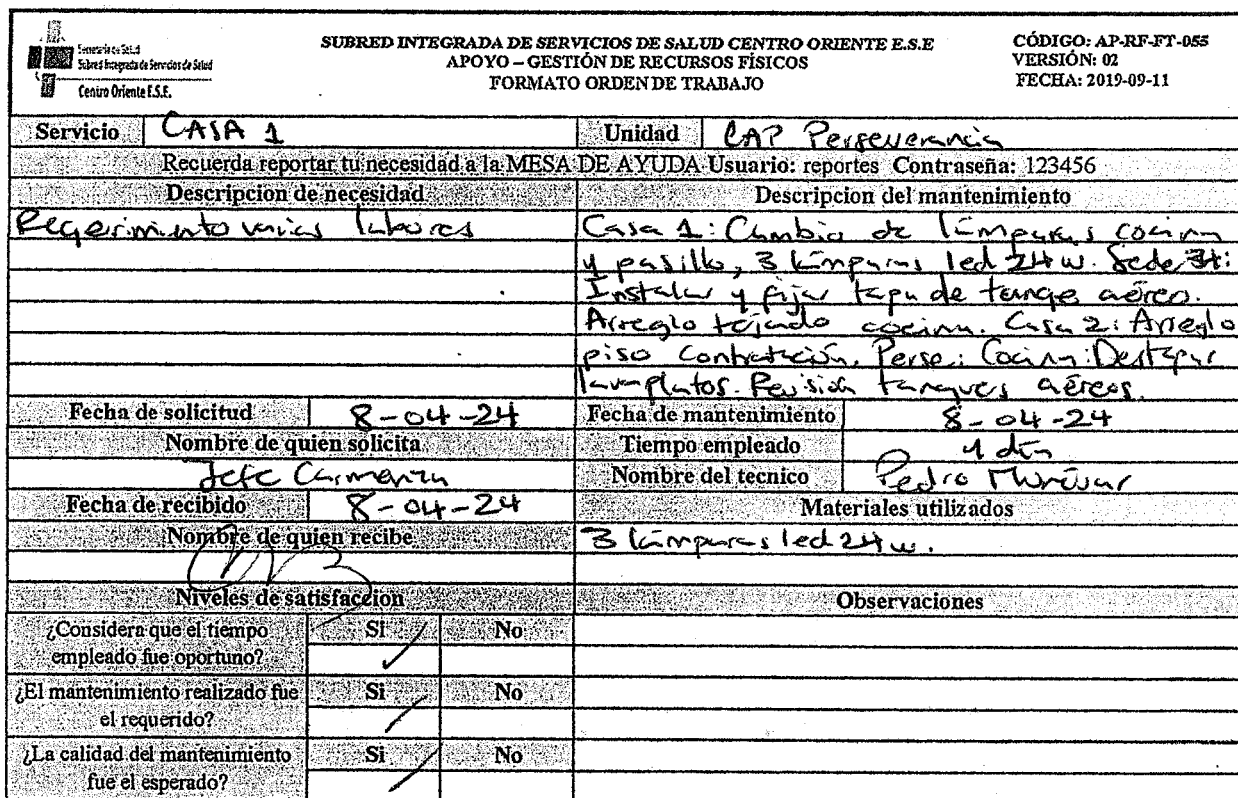 Secretaría de Salud
Subred Integrada de Servicios de Salud
Centro Oriente E.S.E.
SUBRED INTEGRADA DE SERVICIOS DE SALUD CENTRO ORIENTE E.S.E
APOYO – GESTIÓN DE RECURSOS FÍSICOS
FORMATO ORDEN DE TRABAJO
CÓDIGO: AP-RF-FT-055
VERSIÓN: 02
FECHA: 2019-09-11
Servicio CASA 1 Unidad CAP Perseverancia
Recuerda reportar tu necesidad a la MESA DE AYUDA Usuario: reportes Contraseña: 123456
Descripcion de necesidad Descripcion del mantenimiento
Requerimiento varias labores
Casa 1: Cambio de lámparas cocina
y pasillo, 3 lámparas led 24 w. Sede
Instalar y fijar tapa de tanque aéreo.
Arreglo tejado cocina. Casa 2: Arreglo
piso contratación. Perse: Cocina: Destapar
lavaplatos. Revisión tanques aéreos.
Fecha de solicitud 8-04-24 Fecha de mantenimiento 8-04-24
Nombre de quien solicita Tiempo empleado 1 día
Jefe Carmenza Nombre del tecnico Pedro
Fecha de recibido 8-04-24 Materiales utilizados
Nombre de quien recibe 3 lámparas led 24 w.
Niveles de satisfaccion Observaciones
¿Considera que el tiempo empleado fue oportuno? Si No
¿El mantenimiento realizado fue el requerido? Si No
¿La calidad del mantenimiento fue el esperado? Si No